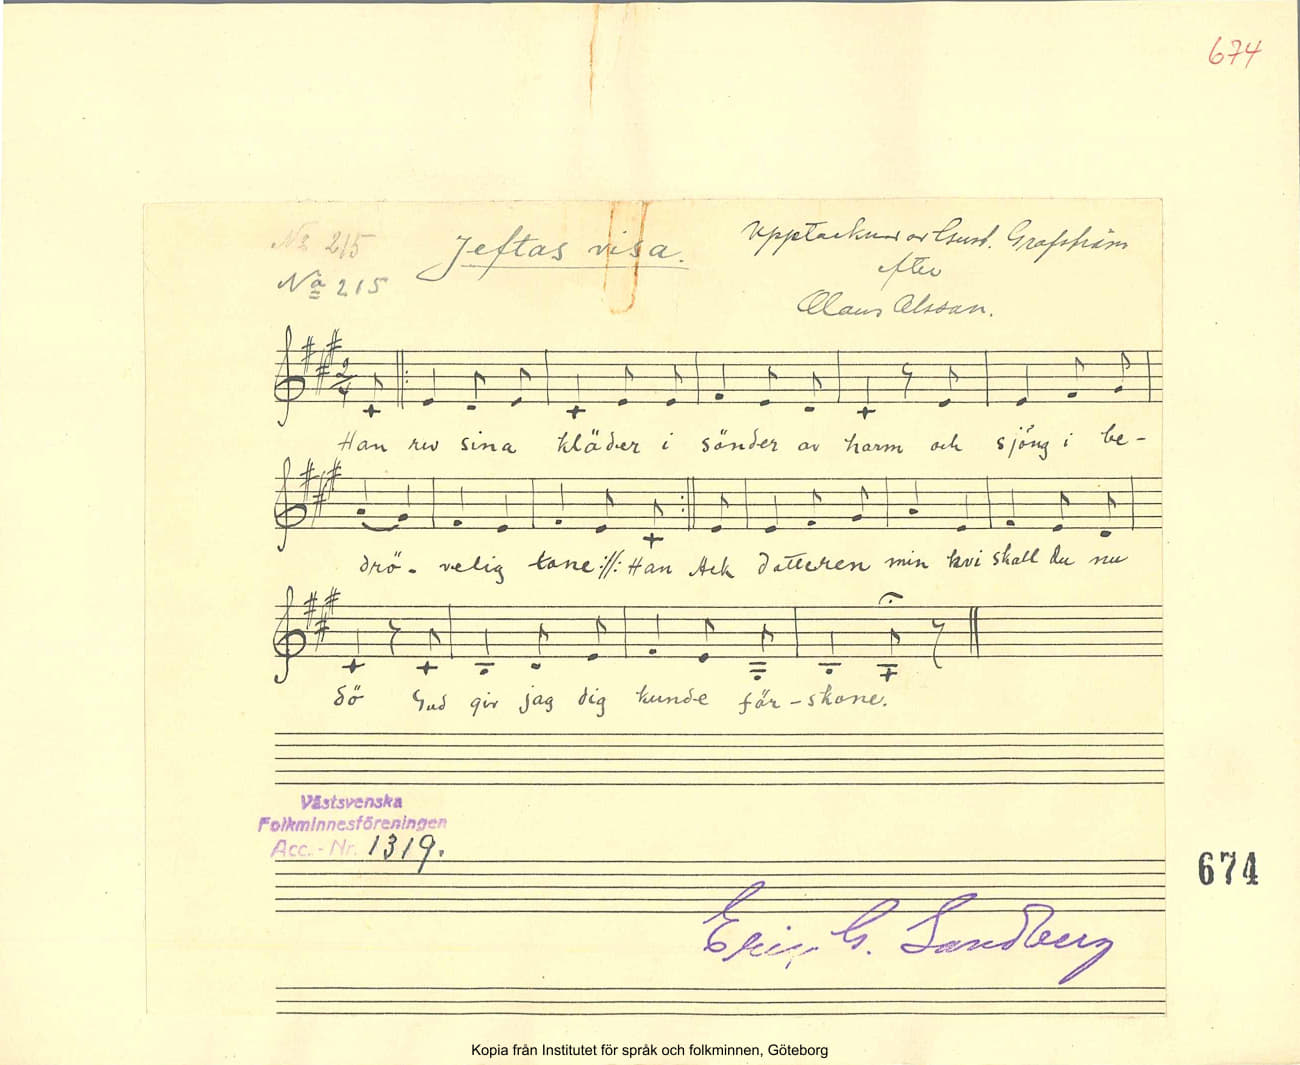 674
No 215
Jeftas visa.
Upptecknad av Gust. Grafström
No 215
efter
Claus Olsson.
2/4
Han rev sina kläder i sönder av harm och sjöng i be-
drö- velig tone :||: Han Ack dotteren min hvi skall du nu
dö Gud giv jag dig kunde för-skone.
Västsvenska
Folkminnesföreningen
Acc.-Nr. 1319.
674
Eric G. Sandberg
Kopia från Institutet för språk och folkminnen, Göteborg